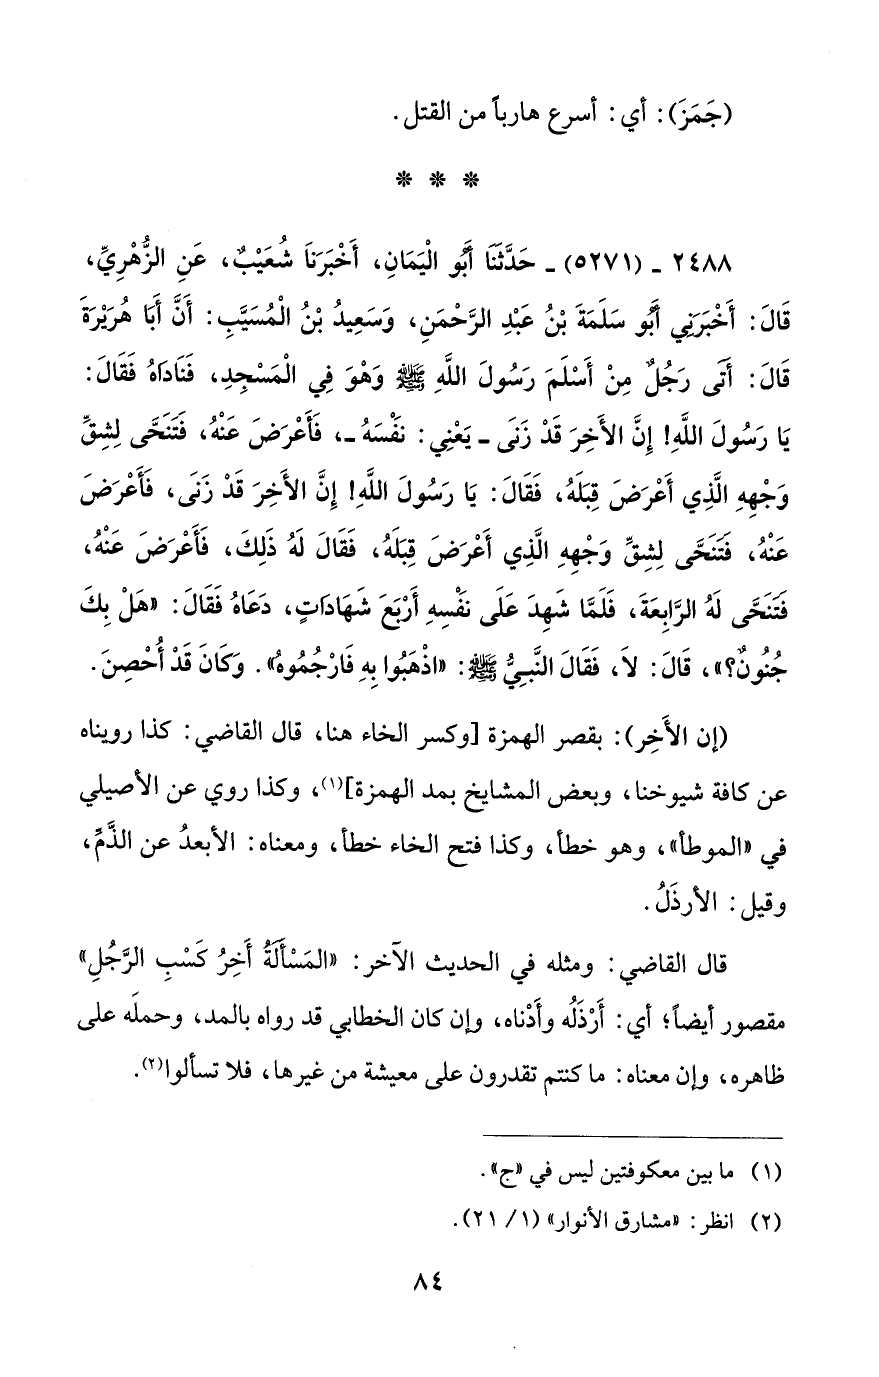 (جَمَزَ): أي: أسرع هارباً من القتل.
* * *
٢٤٨٨ - (٥٢٧١) - حَدَّثَنَا أَبُو الْيَمَانِ، أَخْبَرَنَا شُعَيْبٌ، عَنِ الزُّهْرِيِّ،
قَالَ: أَخْبَرَنِي أَبُو سَلَمَةَ بْنُ عَبْدِ الرَّحْمَنِ، وَسَعِيدُ بْنُ الْمُسَيَّبِ: أَنَّ أَبَا هُرَيْرَةَ
قَالَ: أَتَى رَجُلٌ مِنْ أَسْلَمَ رَسُولَ اللَّهِ ﷺ وَهْوَ فِي الْمَسْجِدِ، فَنَادَاهُ فَقَالَ:
يَا رَسُولَ اللَّهِ! إِنَّ الأَخِرَ قَدْ زَنَى - يَعْنِي: نَفْسَهُ -، فَأَعْرَضَ عَنْهُ، فَتَنَحَّى لِشِقِّ
وَجْهِهِ الَّذِي أَعْرَضَ قِبَلَهُ، فَقَالَ: يَا رَسُولَ اللَّهِ! إِنَّ الأَخِرَ قَدْ زَنَى، فَأَعْرَضَ
عَنْهُ، فَتَنَحَّى لِشِقِّ وَجْهِهِ الَّذِي أَعْرَضَ قِبَلَهُ، فَقَالَ لَهُ ذَلِكَ، فَأَعْرَضَ عَنْهُ،
فَتَنَحَّى لَهُ الرَّابِعَةَ، فَلَمَّا شَهِدَ عَلَى نَفْسِهِ أَرْبَعَ شَهَادَاتٍ، دَعَاهُ فَقَالَ: «هَلْ بِكَ
جُنُونٌ؟»، قَالَ: لاَ، فَقَالَ النَّبِيُّ ﷺ: «اذْهَبُوا بِهِ فَارْجُمُوهُ». وَكَانَ قَدْ أُحْصِنَ.
(إن الأَخِر): بقصر الهمزة [وكسر الخاء هنا، قال القاضي: كذا رويناه
عن كافة شيوخنا، وبعض المشايخ بمد الهمزة](١)، وكذا روي عن الأصيلي
في «الموطأ»، وهو خطأ، وكذا فتح الخاء خطأ، ومعناه: الأبعدُ عن الذَّمِّ،
وقيل: الأرذَلُ.
قال القاضي: ومثله في الحديث الآخر: «المَسْأَلَةُ أَخِرُ كَسْبِ الرَّجُلِ»
مقصور أيضاً؛ أي: أَرْذَلُه وأَدْناه، وإن كان الخطابي قد رواه بالمد، وحملَه على
ظاهره، وإن معناه: ما كنتم تقدرون على معيشة من غيرها، فلا تسألوا(٢).
(١) ما بين معكوفتين ليس في «ج».
(٢) انظر: «مشارق الأنوار» (١/ ٢١).
٨٤